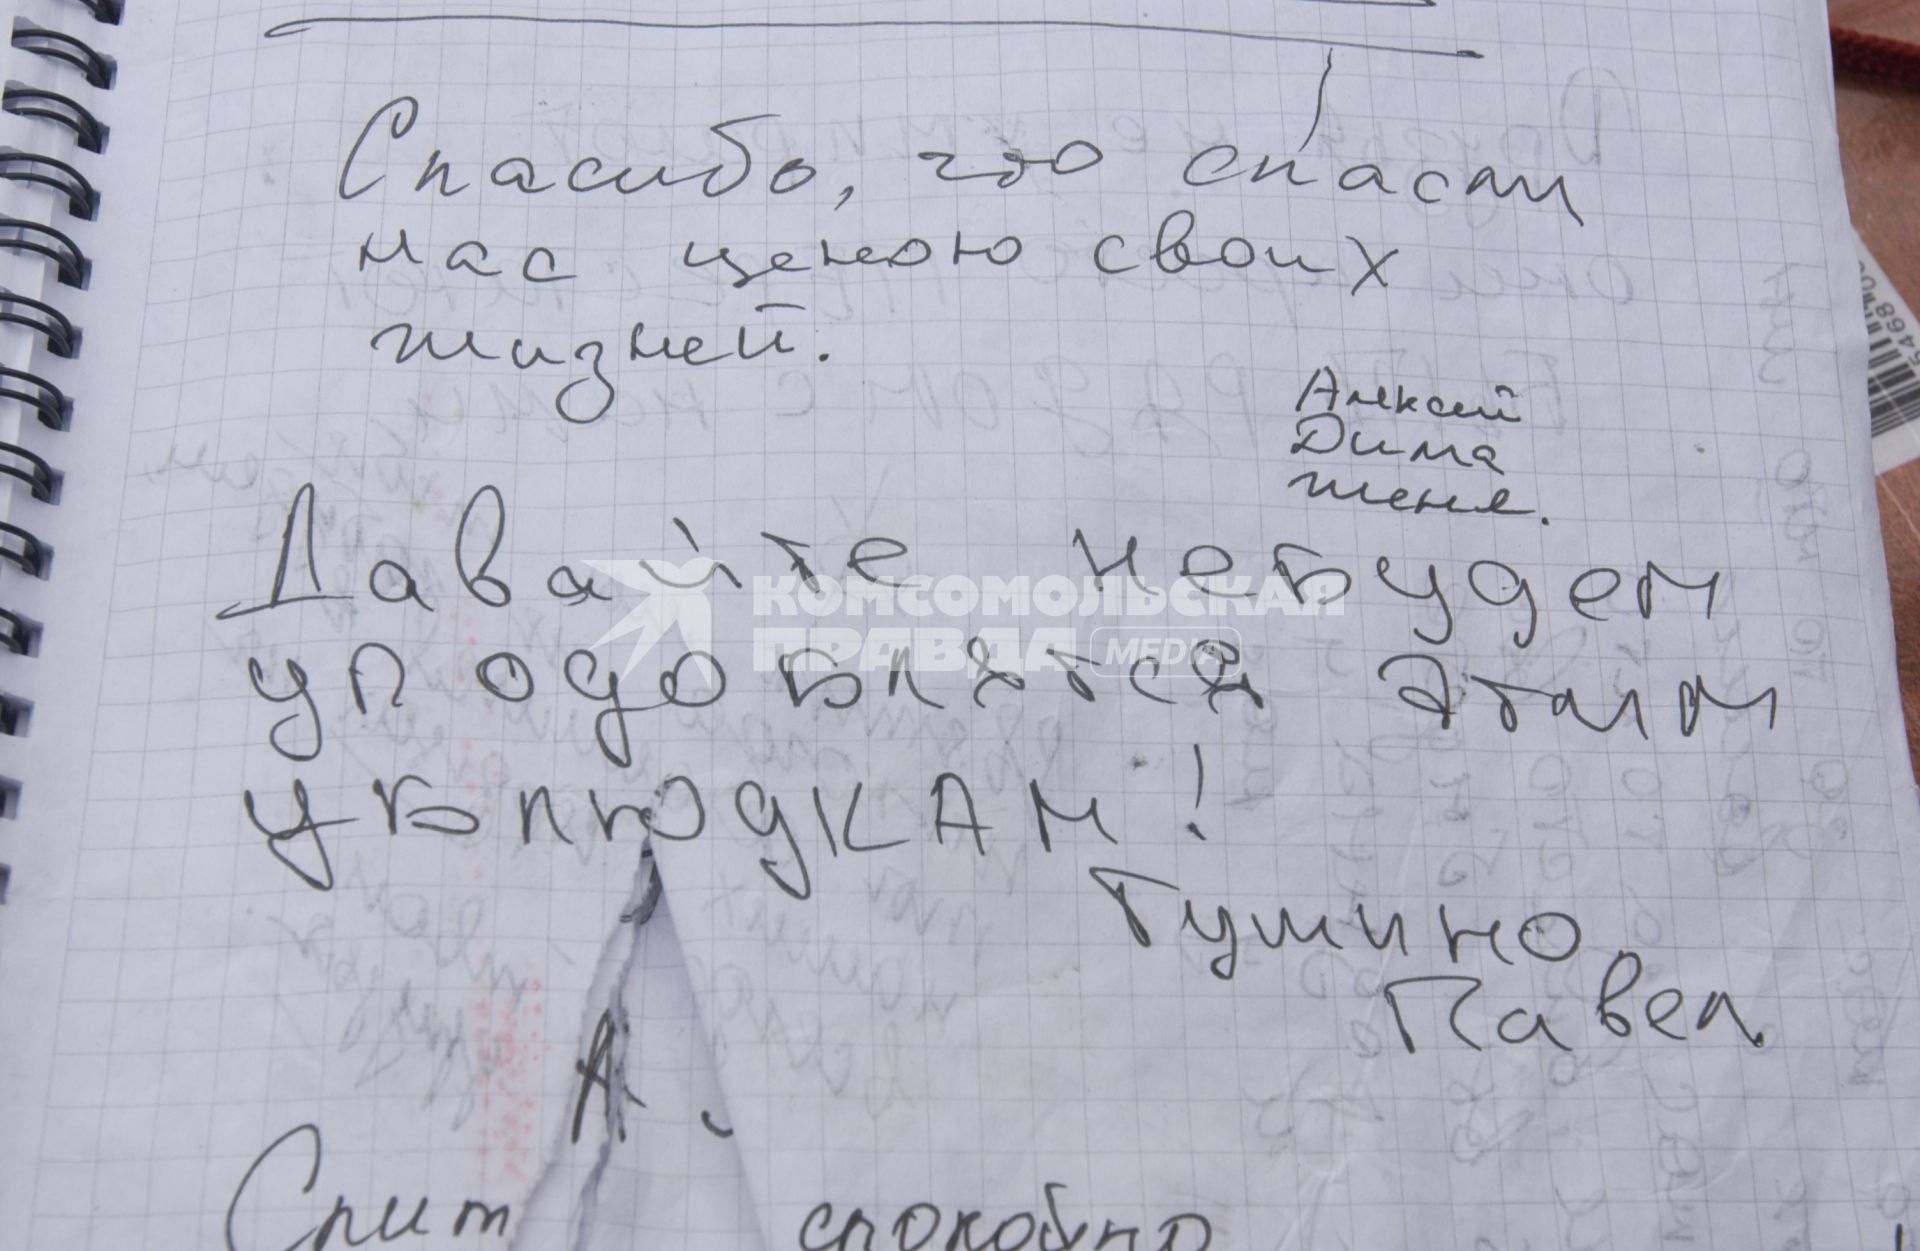 Спасибо, что спасли
нас ценою своих
жизней.
Алексей
Дима
Женя.
Давайте небудем
уподоблятся этим
ублюдкам!
Тушино
Павел.
А.
Спит спокойно
КОМСОМОЛЬСКАЯ
ПРАВДА MEDIA